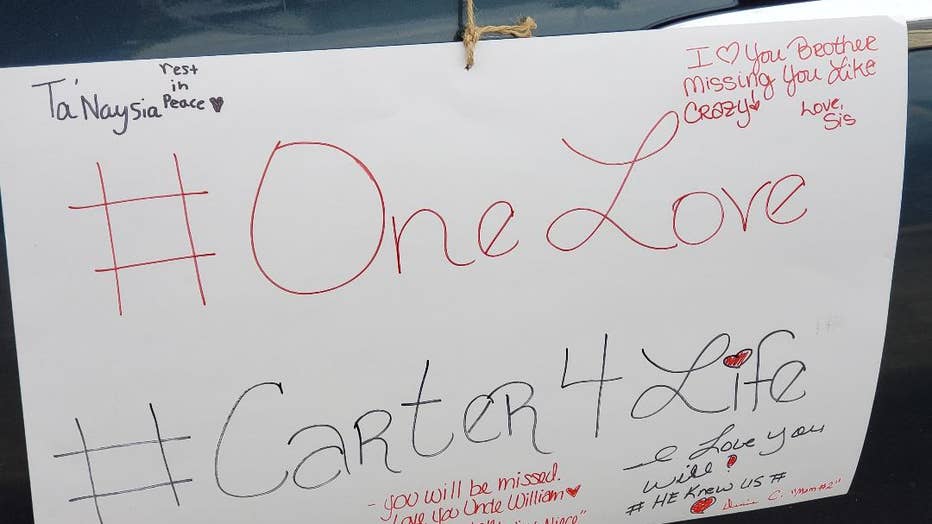 Ta'Naysia
rest
in
Peace
I ♡ You Brother
Missing You Like
Crazy!
Love,
Sis
#OneLove
#Carter4Life
- you will be missed.
Love You Uncle William
Niece"
I Love You
Will!
# HE KNEW US #
C. "Mom #2"